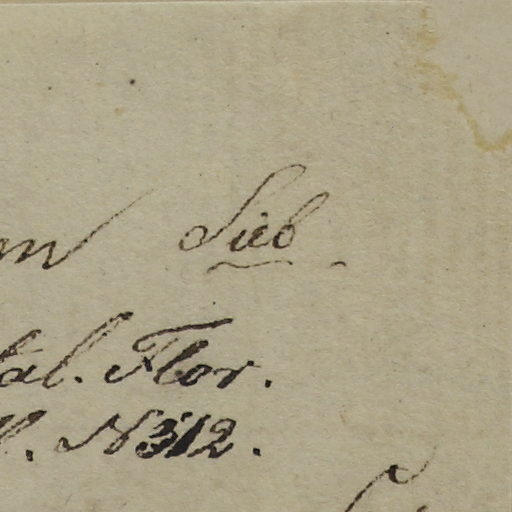 Sieb
al. Flor.
N 312.